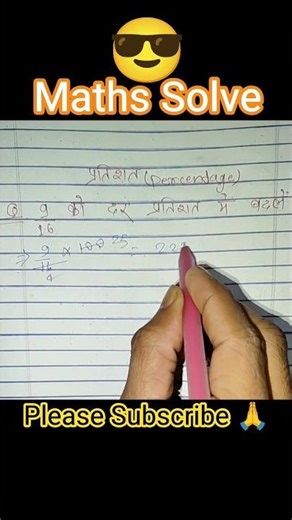 😎
Maths Solve
प्रतिशत (Percentage)
Q 9/16 को दर प्रतिशत में बदलें
⇒ 9/16 × 100 25 = 22
4
Please Subscribe 🙏